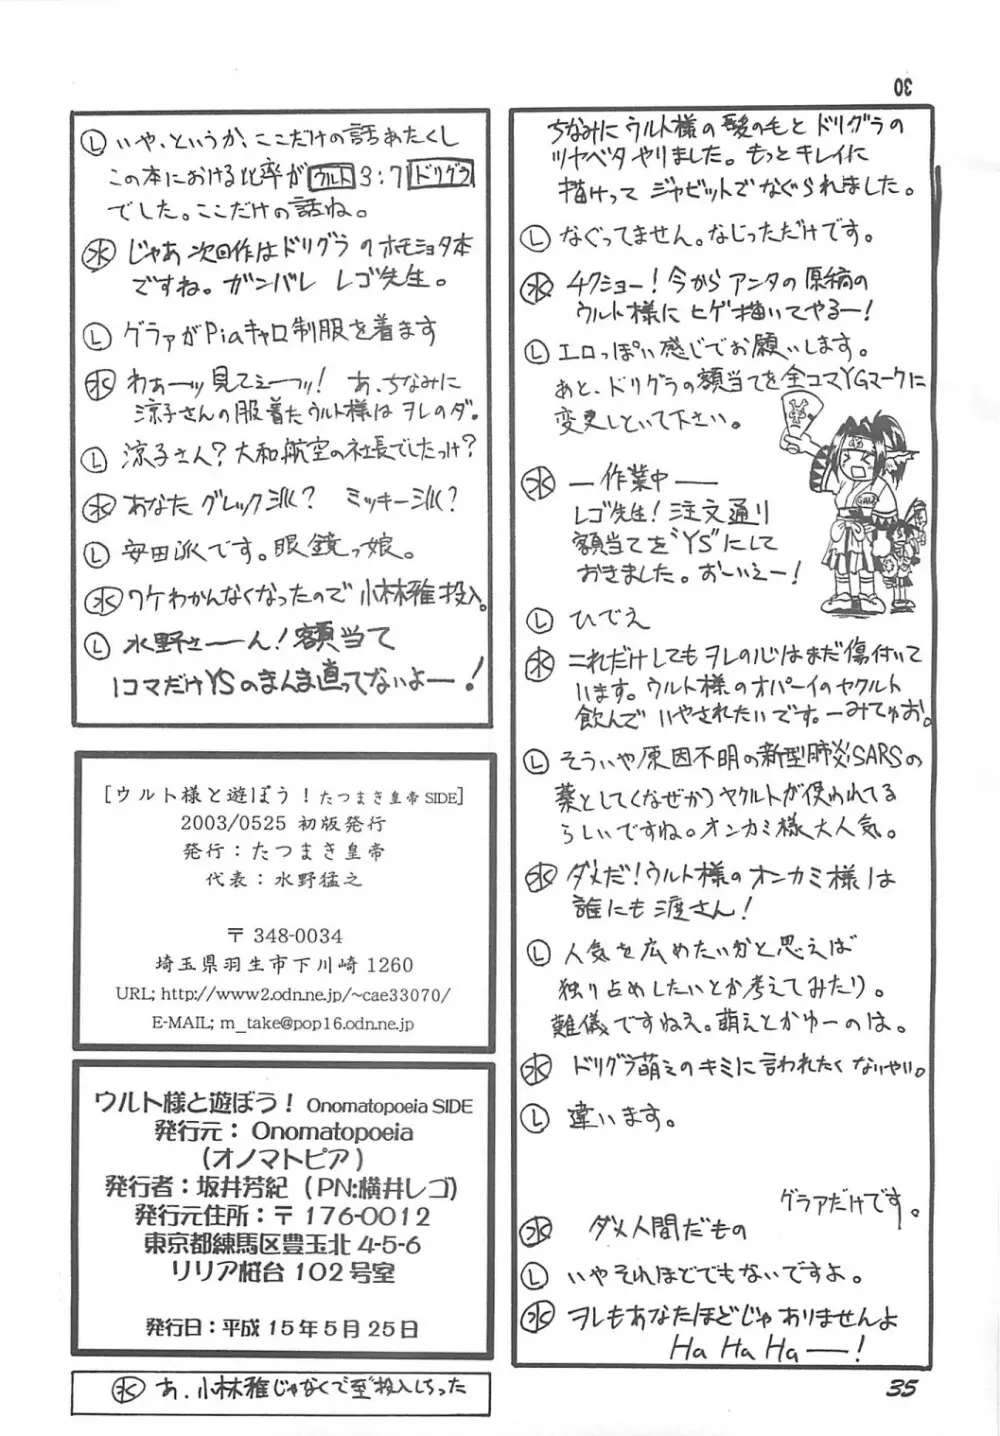 30
ちなみにウルト様の髪の毛とドリグラの
ツヤベタやりました。もっとキレイに
描けって ジャビットでなぐられました。
Ⓛ なぐってません。なじっただけです。
㊌ チクショー！今からアンタの原稿の
ウルト様に ヒゲ描いてやるー！
Ⓛ エロっぽい感じでお願いします。
あと、ドリグラの額当てを全コマYGマークに
変更しといて下さい。
㊌ ―作業中―
レゴ先生！注文通り
額当てを“YS”にして
おきました。おーいえー！
Ⓛ ひでえ
㊌ これだけしてもヲレの心はまだ傷付いて
います。ウルト様のオパーイのヤクルト
飲んで いやされたいです。―みてゅお。
Ⓛ そういや原因不明の新型肺炎SARSの
薬として(なぜか)ヤクルトが使われてる
らしいですね。オンカミ様大人気。
㊌ ダメだ！ウルト様のオンカミ様は
誰にも渡さん！
Ⓛ 人気を広めたいかと思えば
独り占めしたいとか考えてみたり。
難儀ですねえ。萌えとかゆーのは。
㊌ ドリグラ萌えのキミに言われたくないやい。
Ⓛ 違います。
グラァだけです。
㊌ ダメ人間だもの
Ⓛ いやそれほどでもないですよ。
㊌ ヲレもあなたほどじゃありませんよ
Ha Ha Ha ―！
Ⓛ いや、というか、ここだけの話あたくし
この本における比率が ウルト 3:7 ドリグラ
でした。ここだけの話ね。
㊌ じゃあ次回作はドリグラのホモショタ本
ですね。ガンバレ レゴ先生。
Ⓛ グラァがPiaキャロ制服を着ます
㊌ わぁーッ見てえーッ！ あ、ちなみに
涼子さんの服着たウルト様はヲレのダ。
Ⓛ 涼子さん？大和航空の社長でしたっけ？
㊌ あなたグレッグ派？ ミッキー派？
Ⓛ 安田派です。眼鏡っ娘。
㊌ ワケわかんなくなったので小林雅投入。
Ⓛ 水野さーーん！額当て
1コマだけYSのまんま直ってないよー！
[ウルト様と遊ぼう！たつまき皇帝 SIDE]
2003/0525 初版発行
発行：たつまき皇帝
代表：水野猛之
〒 348-0034
埼玉県羽生市下川崎 1260
URL; http://www2.odn.ne.jp/~cae33070/
E-MAIL; m_take@pop16.odn.ne.jp
ウルト様と遊ぼう！ Onomatopoeia SIDE
発行元： Onomatopoeia
（オノマトピア）
発行者：坂井芳紀（PN:横井レゴ）
発行元住所：〒 176-0012
東京都練馬区豊玉北 4-5-6
リリア桜台 102 号室
発行日：平成 15 年 5 月 25 日
㊌ あ、小林雅じゃなくて至投入しちった
35